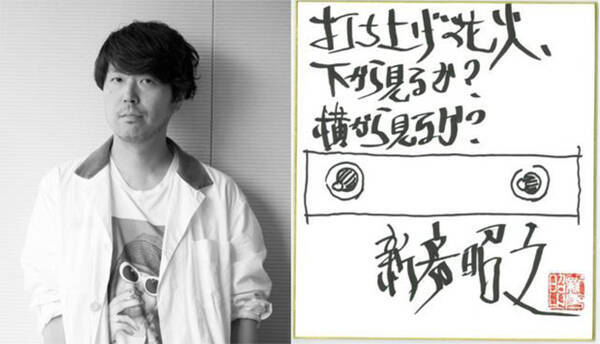 打ち上げ花火、
下から見るか?
横から見るか?
新房昭之